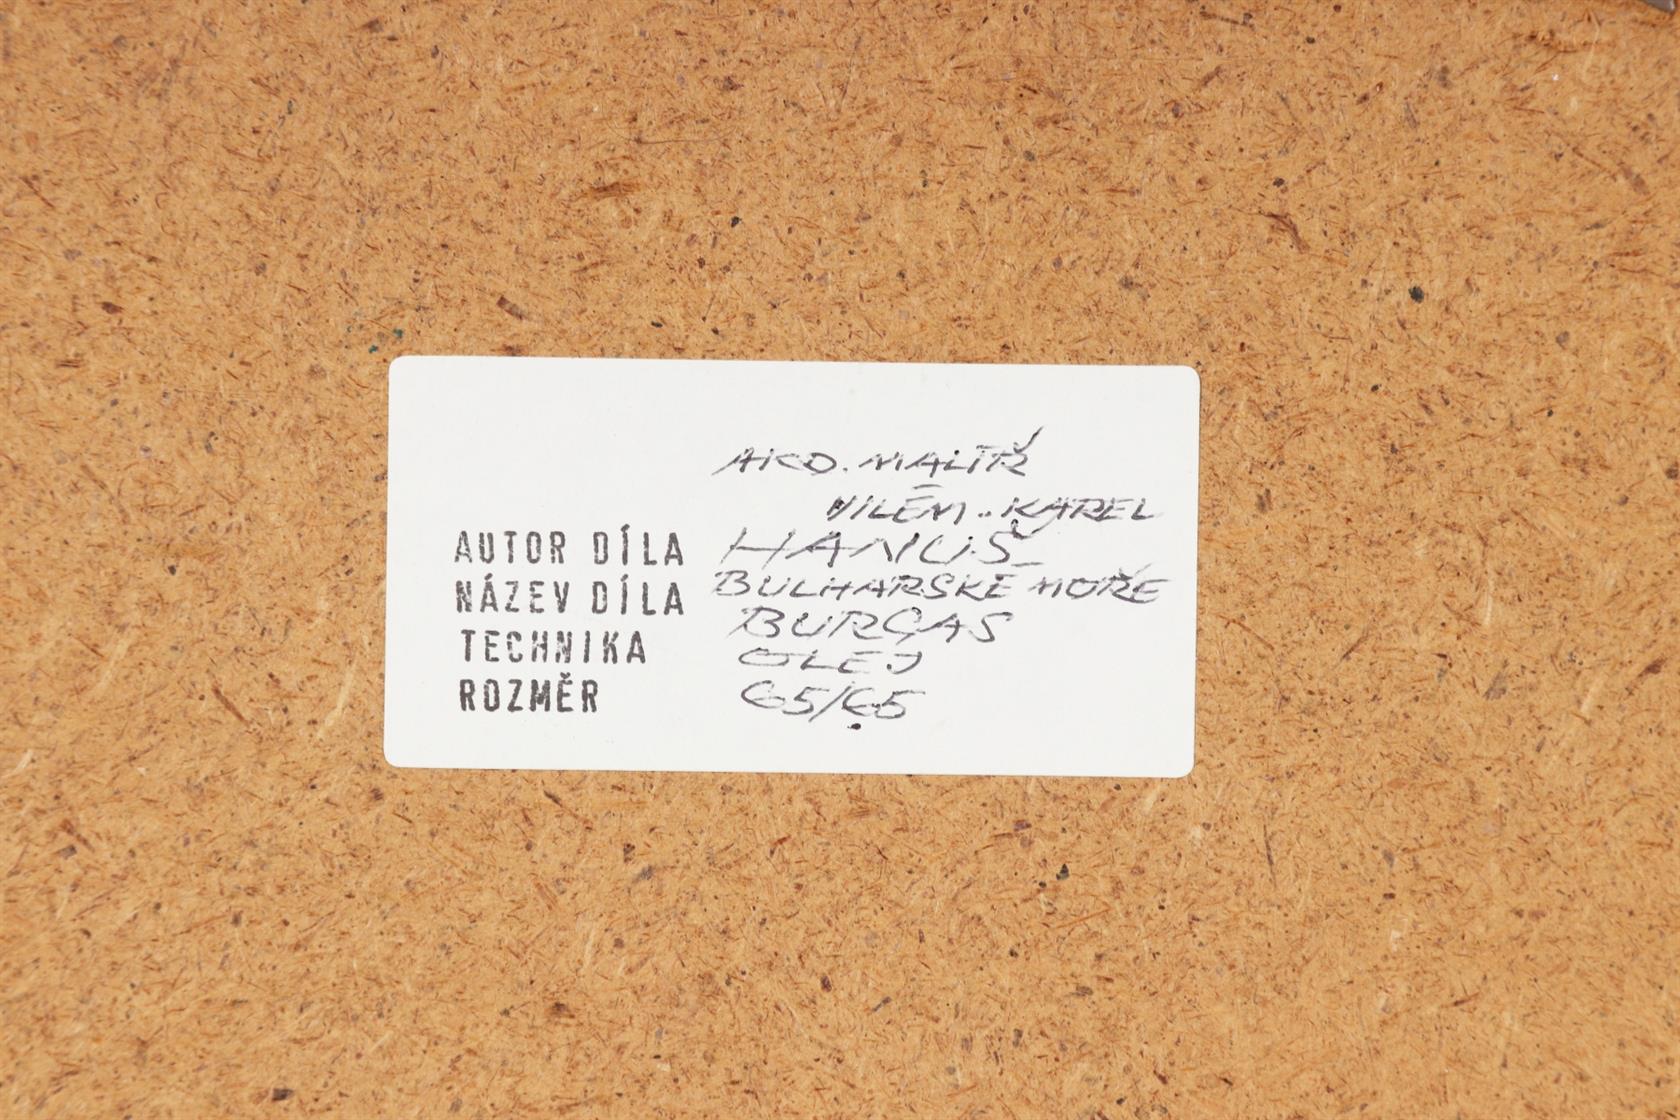 AKD. MALÍŘ
VILÉM.. KAREL
AUTOR DÍLA HANUŠ
NÁZEV DÍLA BULHARSKÉ MOŘE
BURGAS
TECHNIKA OLEJ
ROZMĚR 65/65